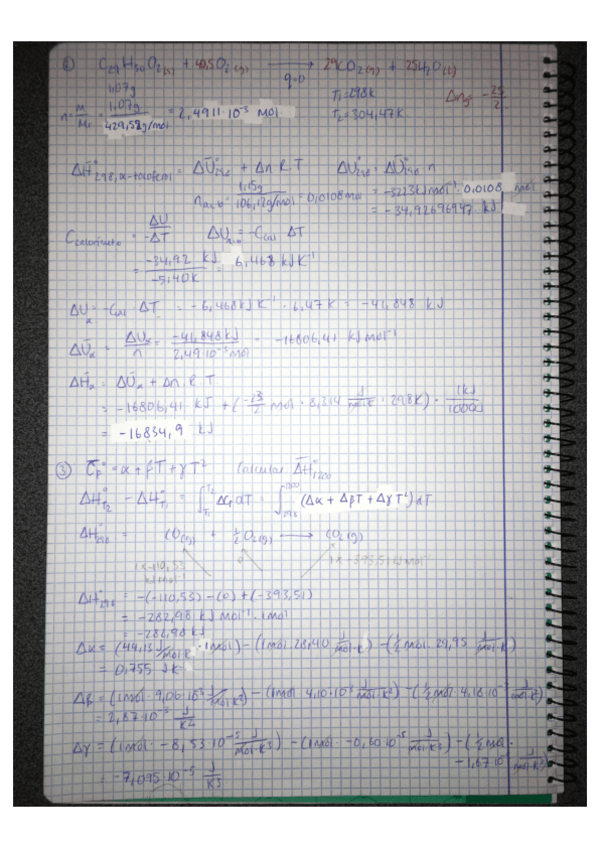 C29H50O2(s) + 40,5O2(g) → 29CO2(g) + 25H2O(l)
q=0
T1=298K
T2=304,47K
Δng= -25/2
1,07g
n= m/Mr = 1,07g / 429,52g/mol = 2,4911·10⁻³ mol
ΔH̄°298,α-tocoferol = ΔŪ°298 + Δn R.T ΔU298 = ΔŪ298 · n
1,15g / 106,12g/mol = 0,0108mol = -3223kJmol⁻¹·0,0108 mol
= -34,92696947 kJ
Ccalorímetro = ΔU/-ΔT = -Ccal ΔT
= -34,92 kJ / -5,40K = 6,468 kJK⁻¹
ΔUα = -Ccal ΔT = -6,468kJK⁻¹ · 6,47K = -41,848 kJ
ΔŪα = ΔUα/n = -41,848kJ / 2,49·10⁻³mol = -16806,41 kJmol⁻¹
ΔH̄α = ΔŪα + Δn. R. T
= -16806,41 kJ + (-23/2 mol · 8,314 J/molK · 298K) · 1kJ/1000J
= -16834,9 kJ
③ C̄p° = α + βT + γT² Calcular ΔH̄°1200
ΔH°T2 - ΔH°T1 = ∫T1 T2 ΔCp dT = ∫298 1200 (Δα + ΔβT + ΔγT²) dT
ΔH°298 = CO(g) + 1/2 O2(g) → CO2(g)
1x-110,53 kJmol⁻¹ 0 1x -393,51 kJmol⁻¹
ΔH°298 = -(-110,53) -(0) + (-393,51)
= -282,98 kJ mol⁻¹ · 1mol
= -282,98 kJ
Δα = (44,15 J/mol·K · 1mol) - (1mol· 28,40 J/mol·K) - (1/2mol· 29,95 J/mol·K)
= 0,755 JK⁻¹
Δβ = (1mol· 9,00·10⁻³ J/mol·K²) - (1mol· 4,10·10⁻³ J/mol·K²) - (1/2mol· 4,18·10⁻³ J/mol·K²)
= 2,87·10⁻³ J/K²
Δγ = (1mol· -8,53·10⁻⁵ J/mol·K³) - (1mol· -0,60·10⁻⁵ J/mol·K³) - (1/2mol·
-1,67·10⁻⁵ J/mol·K³)
= -7,095·10⁻⁵ J/K³